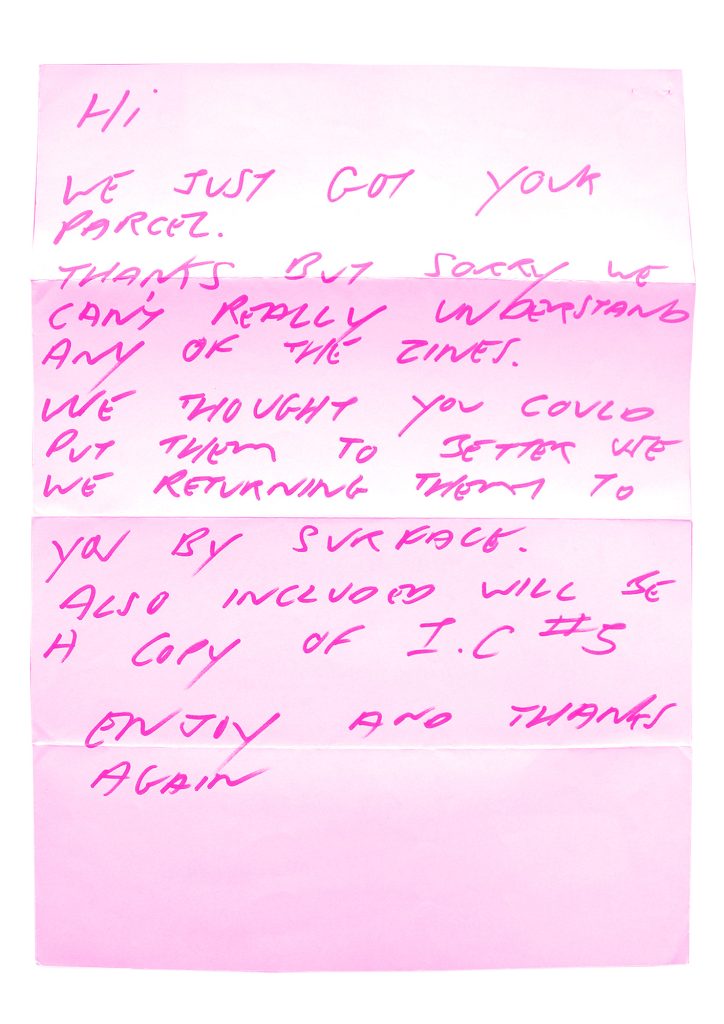 Hi
WE JUST GOT YOUR
PARCEL.
THANKS BUT SORRY WE
CAN'T REALLY UNDERSTAND
ANY OF THE ZINES.
WE THOUGHT YOU COULD
PUT THEM TO BETTER WE
WE RETURNING THEM TO
YOU BY SURFACE.
ALSO INCLUDED WILL BE
A COPY OF I.C #5
ENJOY AND THANKS
AGAIN